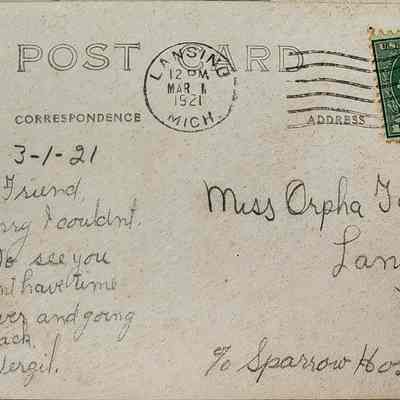 POST CARD
LANSING
12 PM
MAR 1
1921
MICH.
CORRESPONDENCE
ADDRESS
3-1-21
Friend,
rry I couldnt.
to see you
nt have time
ver and going
ack.
Vergil.
Miss Orpha
Lan
c/o Sparrow Hos